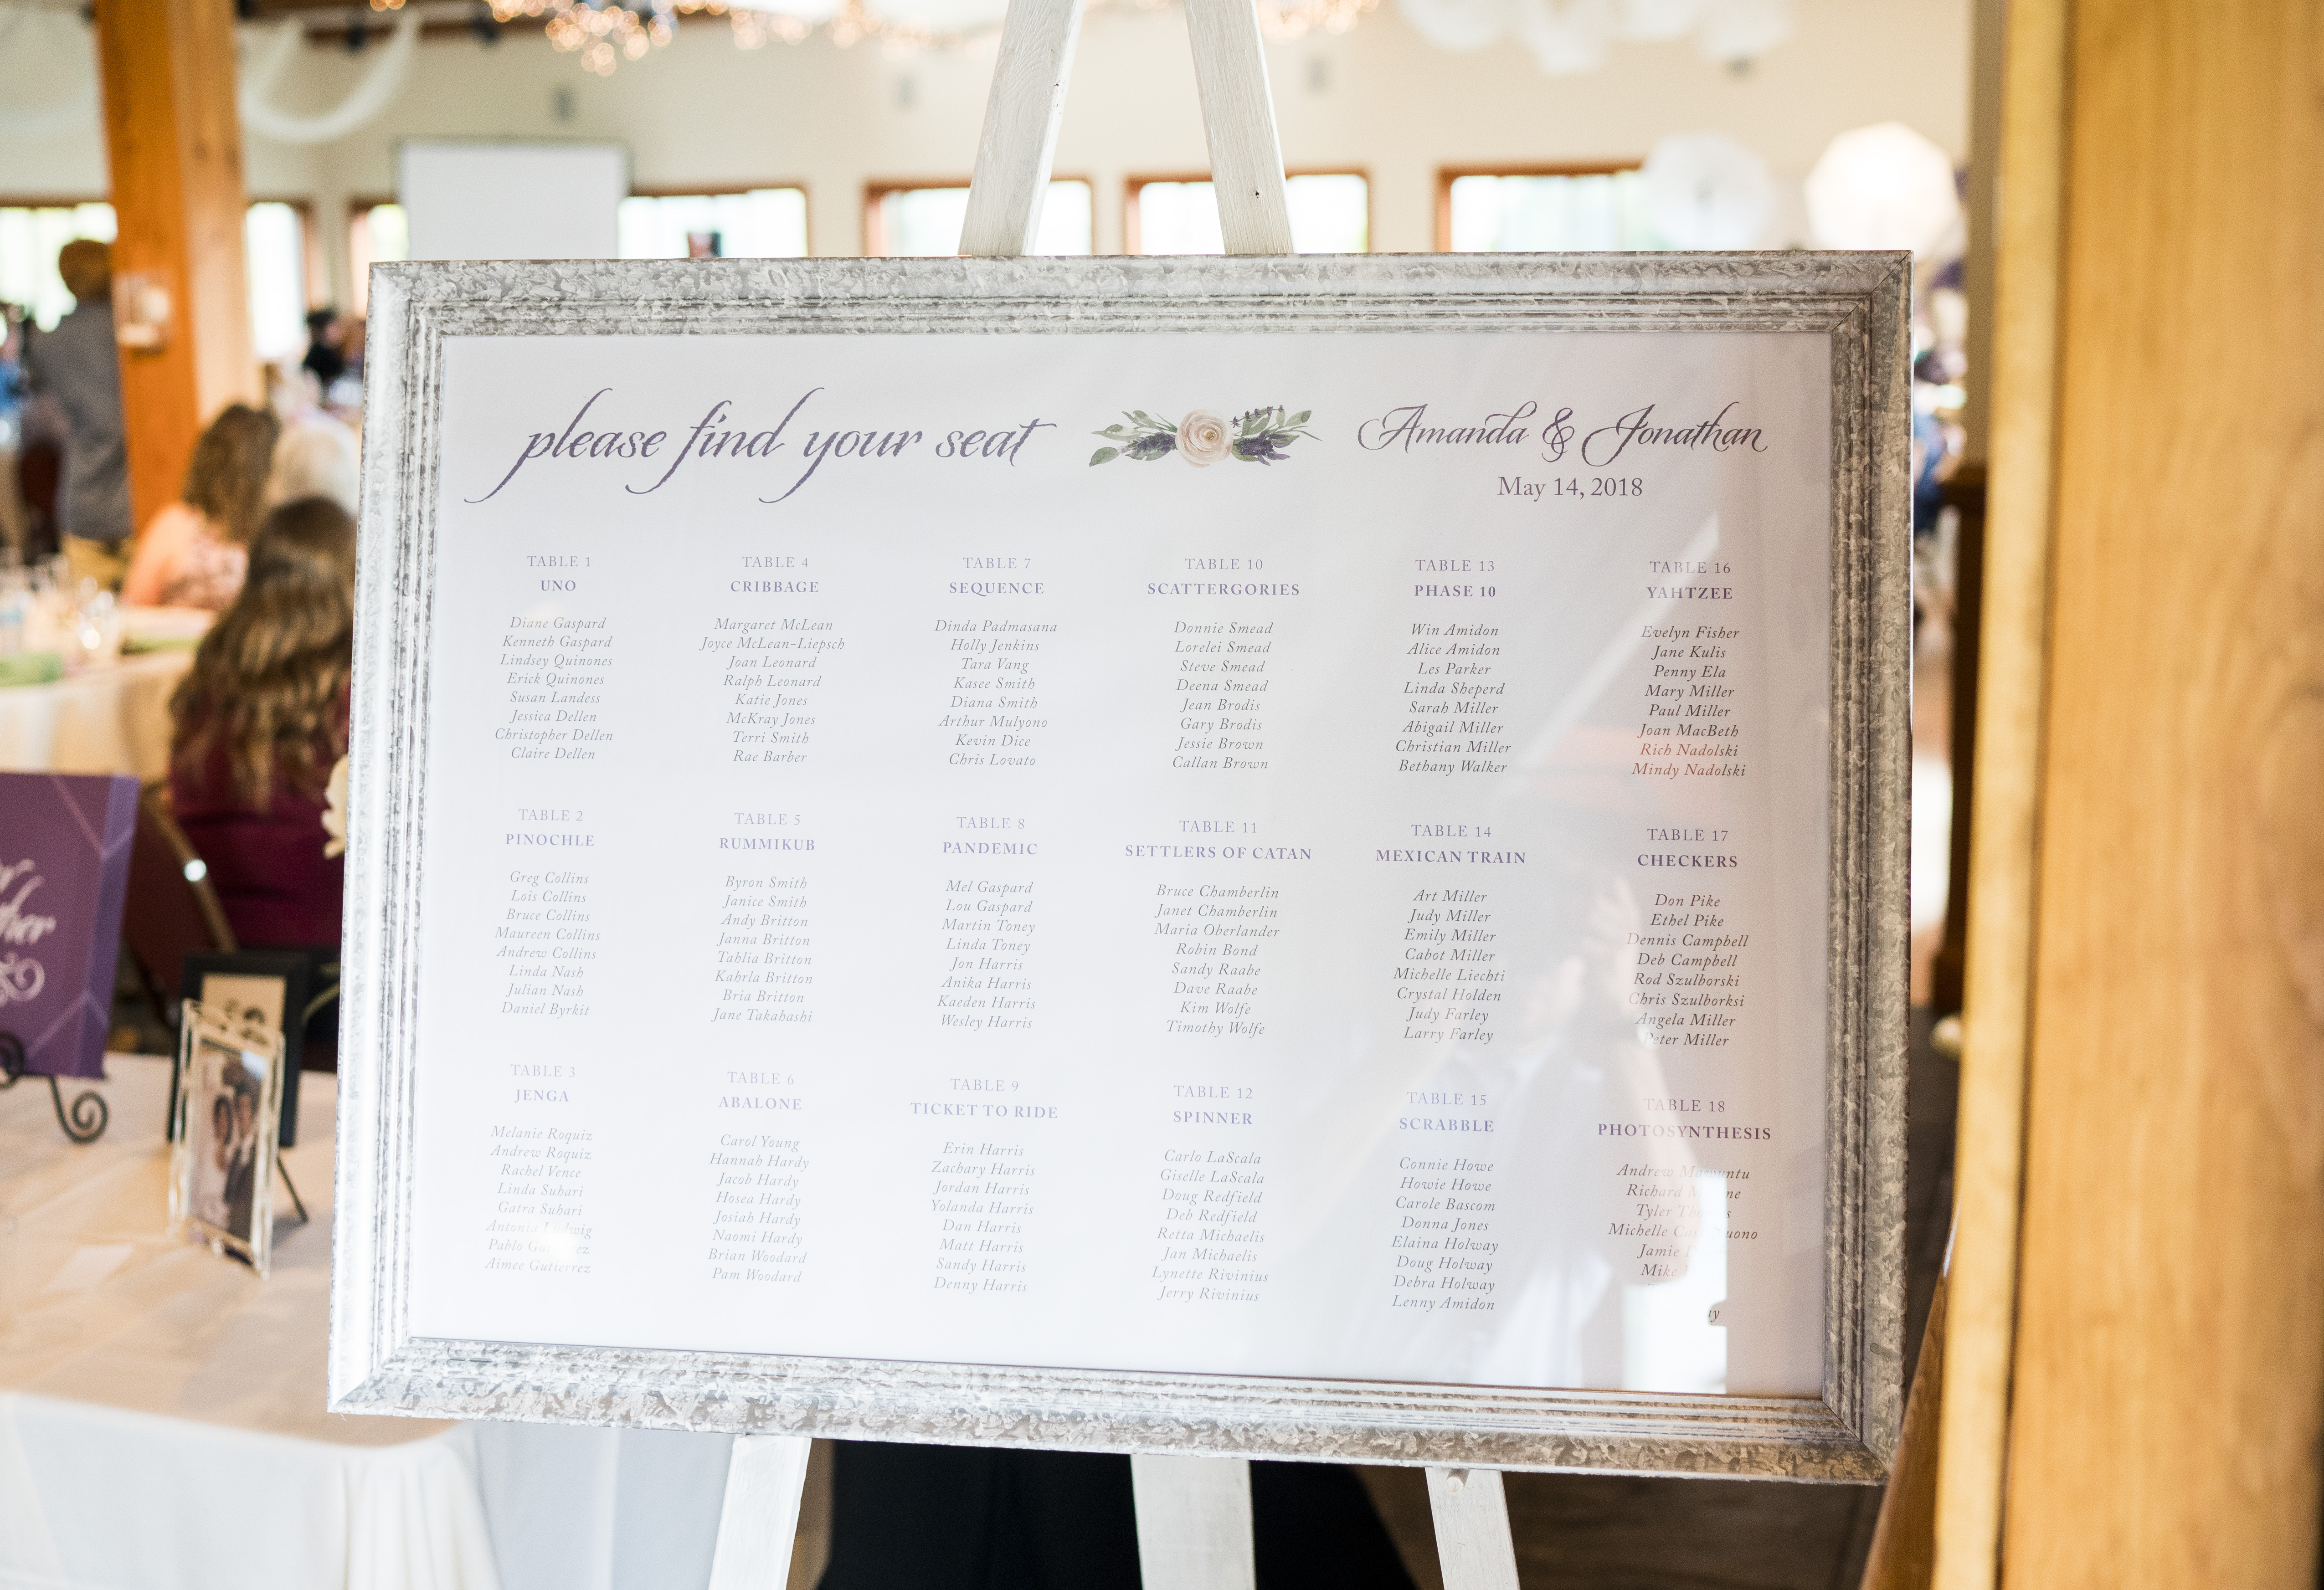 please find your seat
Amanda & Jonathan
May 14, 2018
TABLE 1
UNO
Diane Gaspard
Kenneth Gaspard
Lindsey Quinones
Erick Quinones
Susan Landess
Jessica Dellen
Christopher Dellen
Claire Dellen
TABLE 2
PINOCHLE
Greg Collins
Lois Collins
Bruce Collins
Maureen Collins
Andrew Collins
Linda Nash
Julian Nash
Daniel Byrkit
TABLE 3
JENGA
Melanie Roquiz
Andrew Roquiz
Rachel Vence
Linda Suhari
Gatra Suhari
Antonia
Pablo
Aimee Gutierrez
TABLE 4
CRIBBAGE
Margaret McLean
Joyce McLean-Liepsch
Joan Leonard
Ralph Leonard
Katie Jones
McKray Jones
Terri Smith
Rae Barber
TABLE 5
RUMMIKUB
Byron Smith
Janice Smith
Andy Britton
Janna Britton
Tahlia Britton
Kahrla Britton
Bria Britton
Jane Takahashi
TABLE 6
ABALONE
Carol Young
Hannah Hardy
Jacob Hardy
Hosea Hardy
Josiah Hardy
Naomi Hardy
Brian Woodard
Pam Woodard
TABLE 7
SEQUENCE
Dinda Padmasana
Holly Jenkins
Tara Vang
Kasee Smith
Diana Smith
Arthur Mulyono
Kevin Dice
Chris Lovato
TABLE 8
PANDEMIC
Mel Gaspard
Lou Gaspard
Martin Toney
Linda Toney
Jon Harris
Anika Harris
Kaeden Harris
Wesley Harris
TABLE 9
TICKET TO RIDE
Erin Harris
Zachary Harris
Jordan Harris
Yolanda Harris
Dan Harris
Matt Harris
Sandy Harris
Denny Harris
TABLE 10
SCATTERGORIES
Donnie Smead
Lorelei Smead
Steve Smead
Deena Smead
Jean Brodis
Gary Brodis
Jessie Brown
Callan Brown
TABLE 11
SETTLERS OF CATAN
Bruce Chamberlin
Janet Chamberlin
Maria Oberlander
Robin Bond
Sandy Raabe
Dave Raabe
Kim Wolfe
Timothy Wolfe
TABLE 12
SPINNER
Carlo LaScala
Giselle LaScala
Doug Redfield
Deb Redfield
Retta Michaelis
Jan Michaelis
Lynette Rivinius
Jerry Rivinius
TABLE 13
PHASE 10
Win Amidon
Alice Amidon
Les Parker
Linda Sheperd
Sarah Miller
Abigail Miller
Christian Miller
Bethany Walker
TABLE 14
MEXICAN TRAIN
Art Miller
Judy Miller
Emily Miller
Cabot Miller
Michelle Liechti
Crystal Holden
Judy Farley
Larry Farley
TABLE 15
SCRABBLE
Connie Howe
Howie Howe
Carole Bascom
Donna Jones
Elaina Holway
Doug Holway
Debra Holway
Lenny Amidon
TABLE 16
YAHTZEE
Evelyn Fisher
Jane Kulis
Penny Ela
Mary Miller
Paul Miller
Joan MacBeth
Rich Nadolski
Mindy Nadolski
TABLE 17
CHECKERS
Don Pike
Ethel Pike
Dennis Campbell
Deb Campbell
Rod Szulborski
Chris Szulborksi
Angela Miller
Peter Miller
TABLE 18
PHOTOSYNTHESIS
Andrew
Richard
Tyler
Michelle
Jamie
Mike